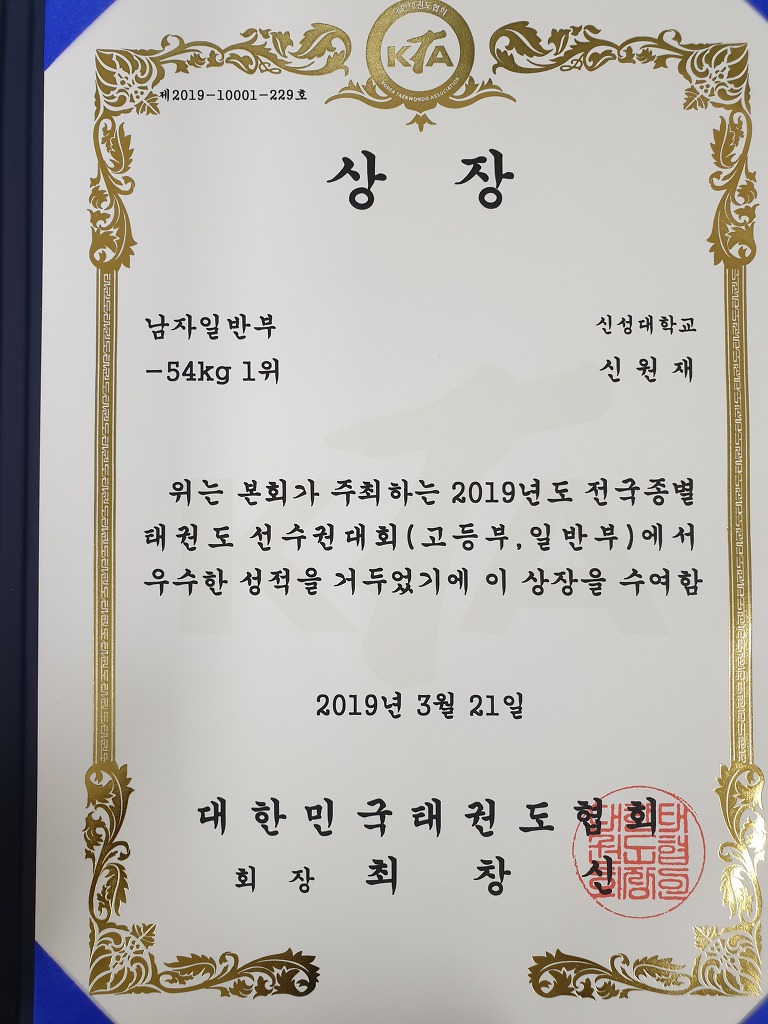 대한태권도협회
KTA
KOREA TAEKWONDO ASSOCIATION
제2019-10001-229호
상 장
남자일반부
신성대학교
-54kg 1위
신 원 재
위는 본회가 주최하는 2019년도 전국종별
태권도 선수권대회(고등부,일반부)에서
우수한 성적을 거두었기에 이 상장을 수여함
2019년 3월 21일
대한민국태권도협회
회 장 최 창 신